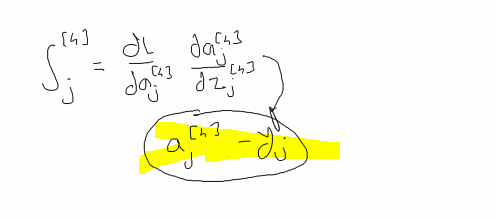 ∫_j^[4] = dL/da_j^[4] da_j^[4]/dz_j^[4]
a_j^[4] - y_j